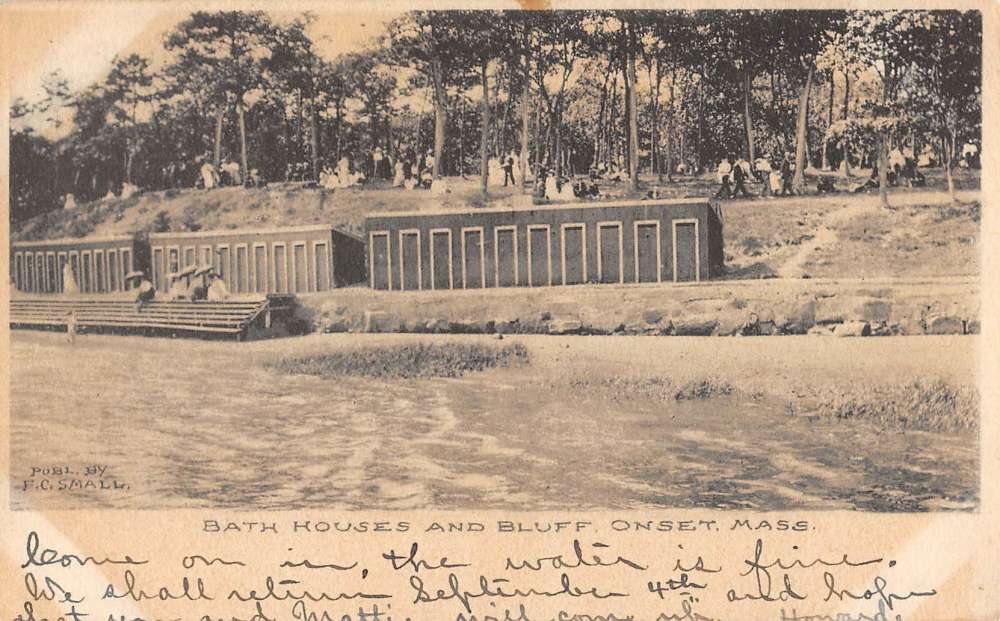 PUBL. BY
F.C. SMALL.
BATH HOUSES AND BLUFF, ONSET, MASS.
Come on in, the water is fine.
We shall return September 4th and hope
that you and Mattie will come up. Howard.